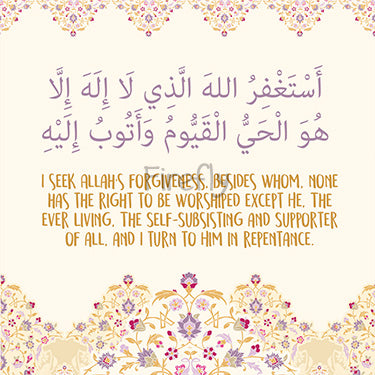 أَسْتَغْفِرُ اللهَ الَّذِي لَا إِلَهَ إِلَّا
هُوَ الْحَيُّ الْقَيُّومُ وَأَتُوبُ إِلَيْهِ
Firefly
I SEEK ALLAH'S FORGIVENESS, BESIDES WHOM, NONE
HAS THE RIGHT TO BE WORSHIPED EXCEPT HE, THE
EVER LIVING, THE SELF-SUBSISTING AND SUPPORTER
OF ALL, AND I TURN TO HIM IN REPENTANCE.